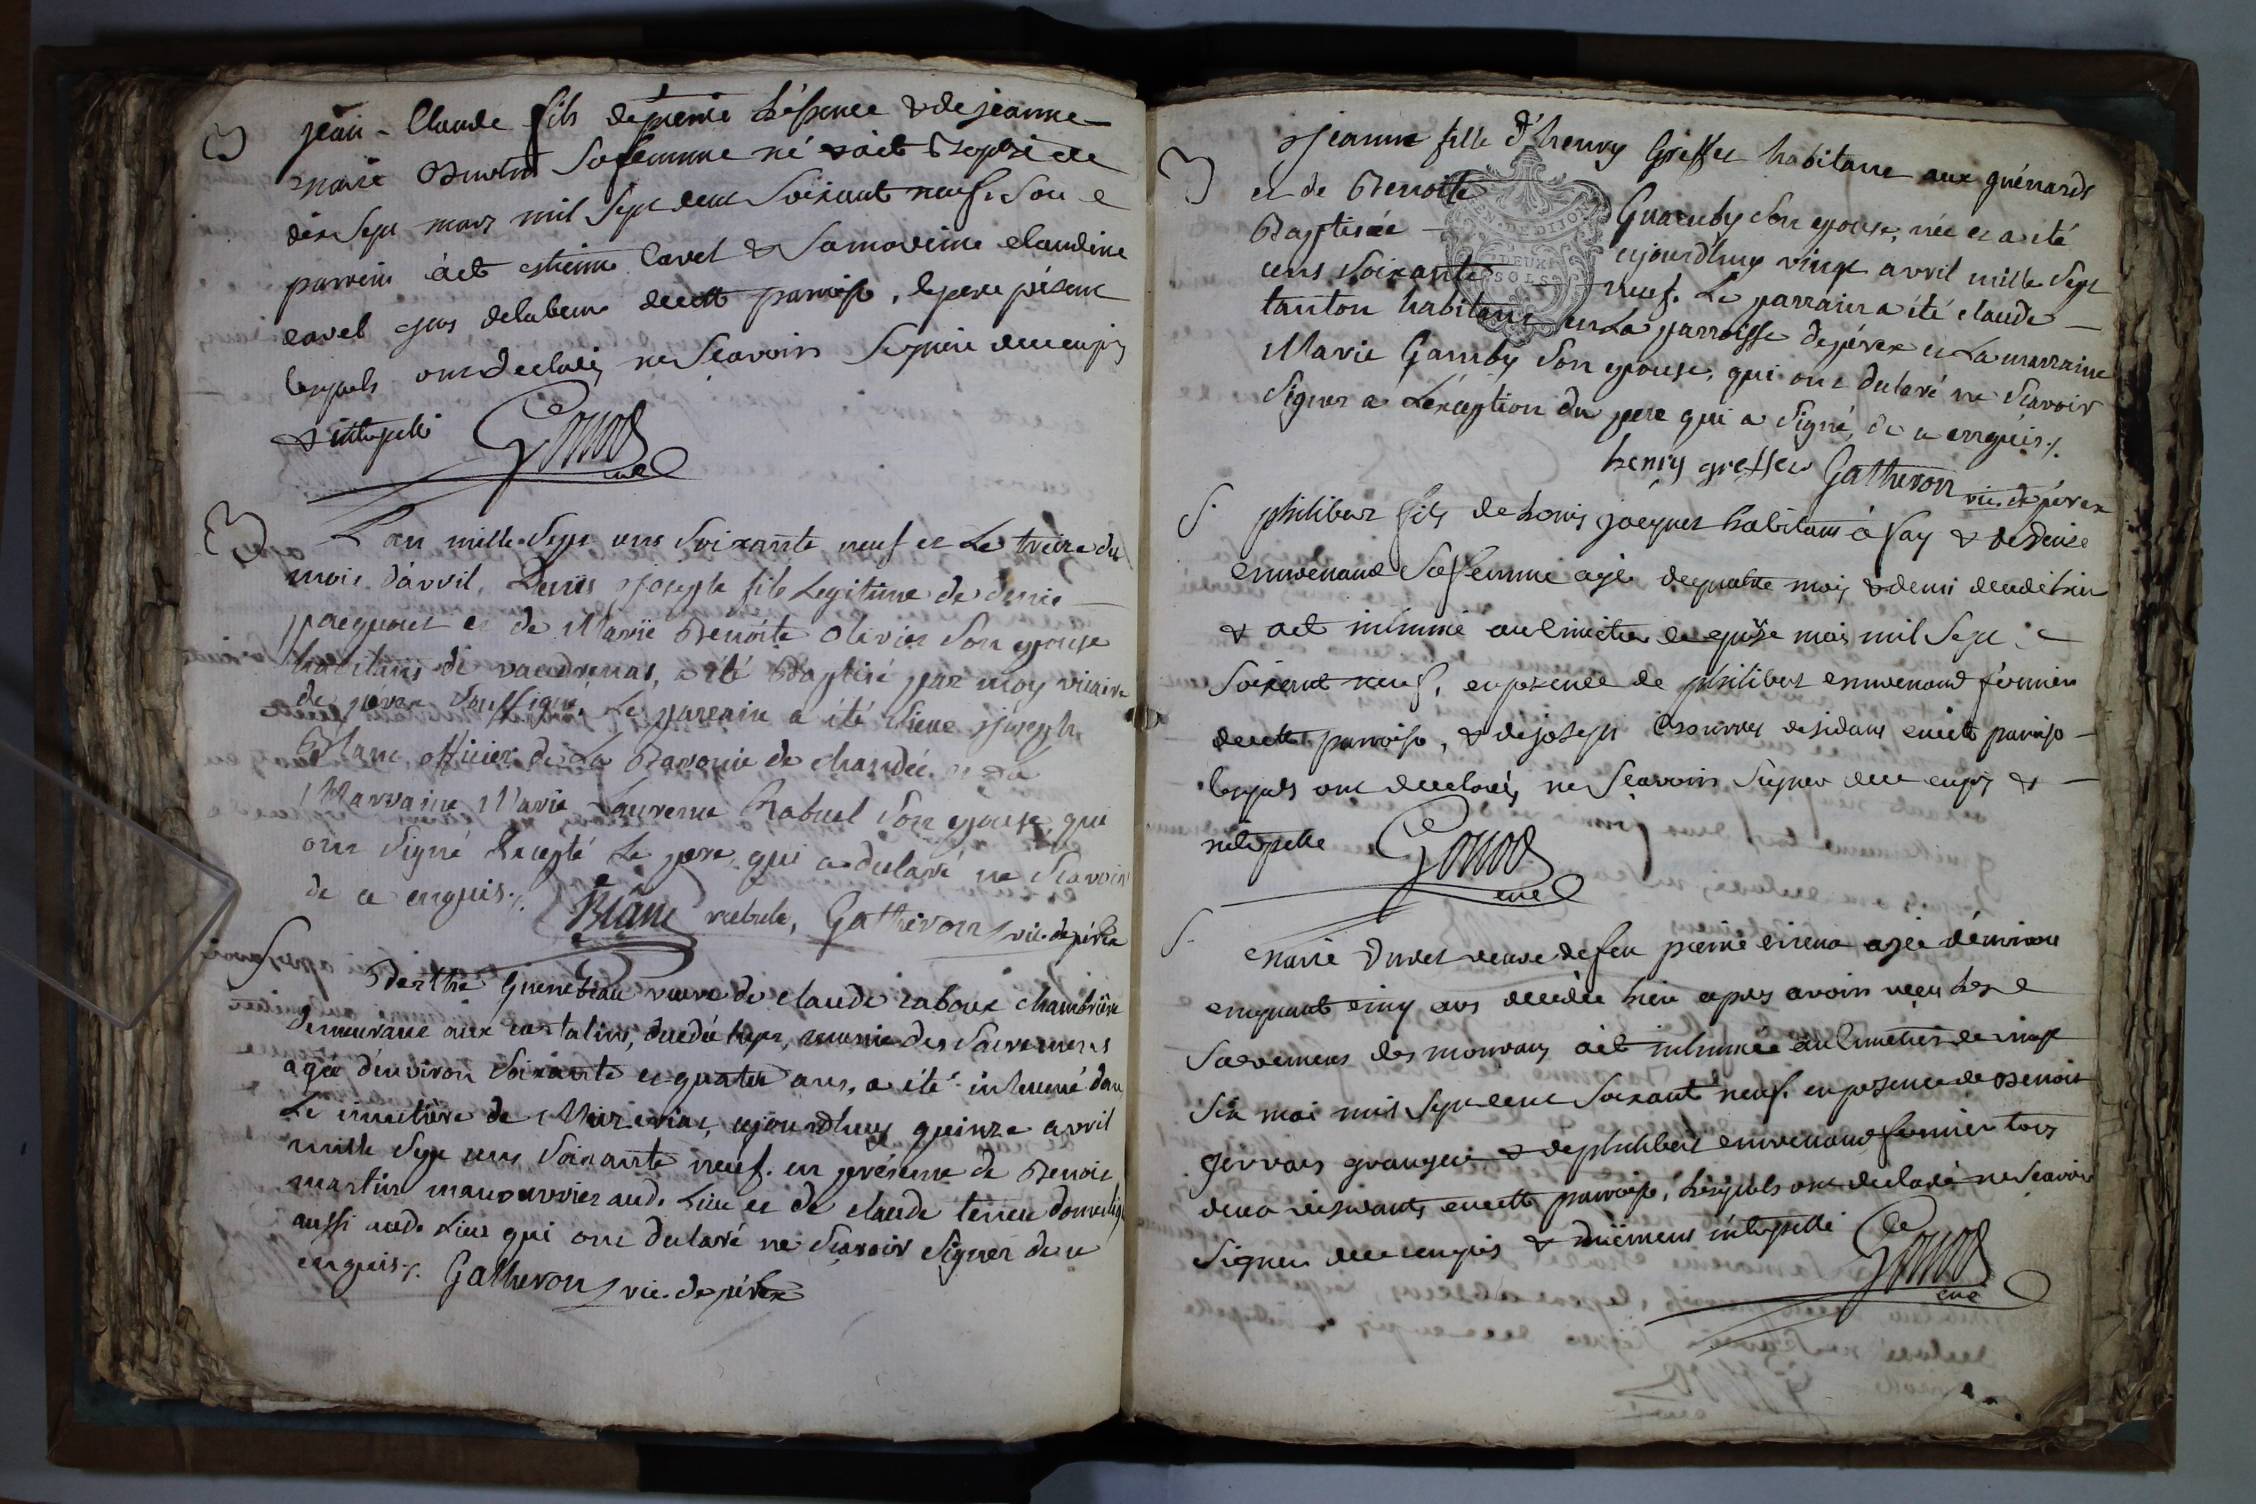 B
jean-Claude fils de pierre Lespence & de jeanne
marie sa femme né & aeté Baptisé le
dix sept mars mil sept cent soixante neuf. Son
parrein àeté estienne Cavet & sa mareine claudine
cavet tous de cette paroisse, le pere présent
lesquels ont declarés ne scavoir signer de ce enquis
& interpellé
Gonod
curé
B
L'an mille sept cens soixante neuf et le treize du
mois d'avril, Denis joseph fils legitime de denis
pacquet et de Marie Benoite Olivier son épouse
habitans de vandrenas, a été Baptisé par moy vicaire
de pérex soussigné, le parrain a été sieur joseph
Blanc officier de la Baronie de chandée et la
Marraine Marie Laurence Rabuel son épouse qui
ont signé Excepté le pere, qui a declaré ne scavoir
de ce enquis./.
Blanc rabuele, Gatheron vic. de pérex
S
Berthe Guenebeau veuve de claude raboux chambriere
demeurant aux catalins, decedée hyer, munie des sacremens
agée d'environ soixante et quatre ans, a été inhumé dans
le cimetière de Mezeriat, aujourdhuy quinze avril
mille sept cens soixante neuf. en présence de Benoit
martin manouvrier aud. lieu et de claude terrier domestique
aussi aud. lieu qui ont declaré ne scavoir signer de ce
enquis./. Gatheron vic. de pérex
B
jeanne fille d'henry Greffet habitant aux guénards
et de Benoite Gueruby son epouse, née et a été
Baptisée aujourd'huy vingt avril mille sept
cens soixante neuf. Le parrain a été claude
tanton habitant en la parroisse de pérex et la marraine
Marie Gamby son epouse, qui ont declaré ne scavoir
signer a l'exception du pere qui a signé, de ce enquis./.
GEN. DE DIJON
DEUX
SOLS
henry greffet Gatheron vic. de pérex
S.
philibert fils de Louis jacquet habitant à fay & de Denise
enuvenaud sa femme agé de quatre mois & demi decedé hier
& aeté inhumé au cimetier le quinze mai mil sept c
soixante neuf, en presence de philibert enuvenaud fermier
de cette parroise, & de joseph residans en cette paroise
lesquels ont declarés ne scavoir signer de ce enquis &
interpellé
Gonod
curé
S.
marie Duvet veuve de feu pierre agée d'environ
cinquante cinq ans decedée hier apres avoir reçu les
sacremens des mourans aeté inhumée au cimetier le vingt
six mai mil sept cent soixante neuf. en presence de Benoit
gervais granger & de philibert enuvenaud fermier tous
deux residants en cette paroise, lesquels ont declaré ne scavoir
signer de ce enquis & interpellé
Gonod
curé